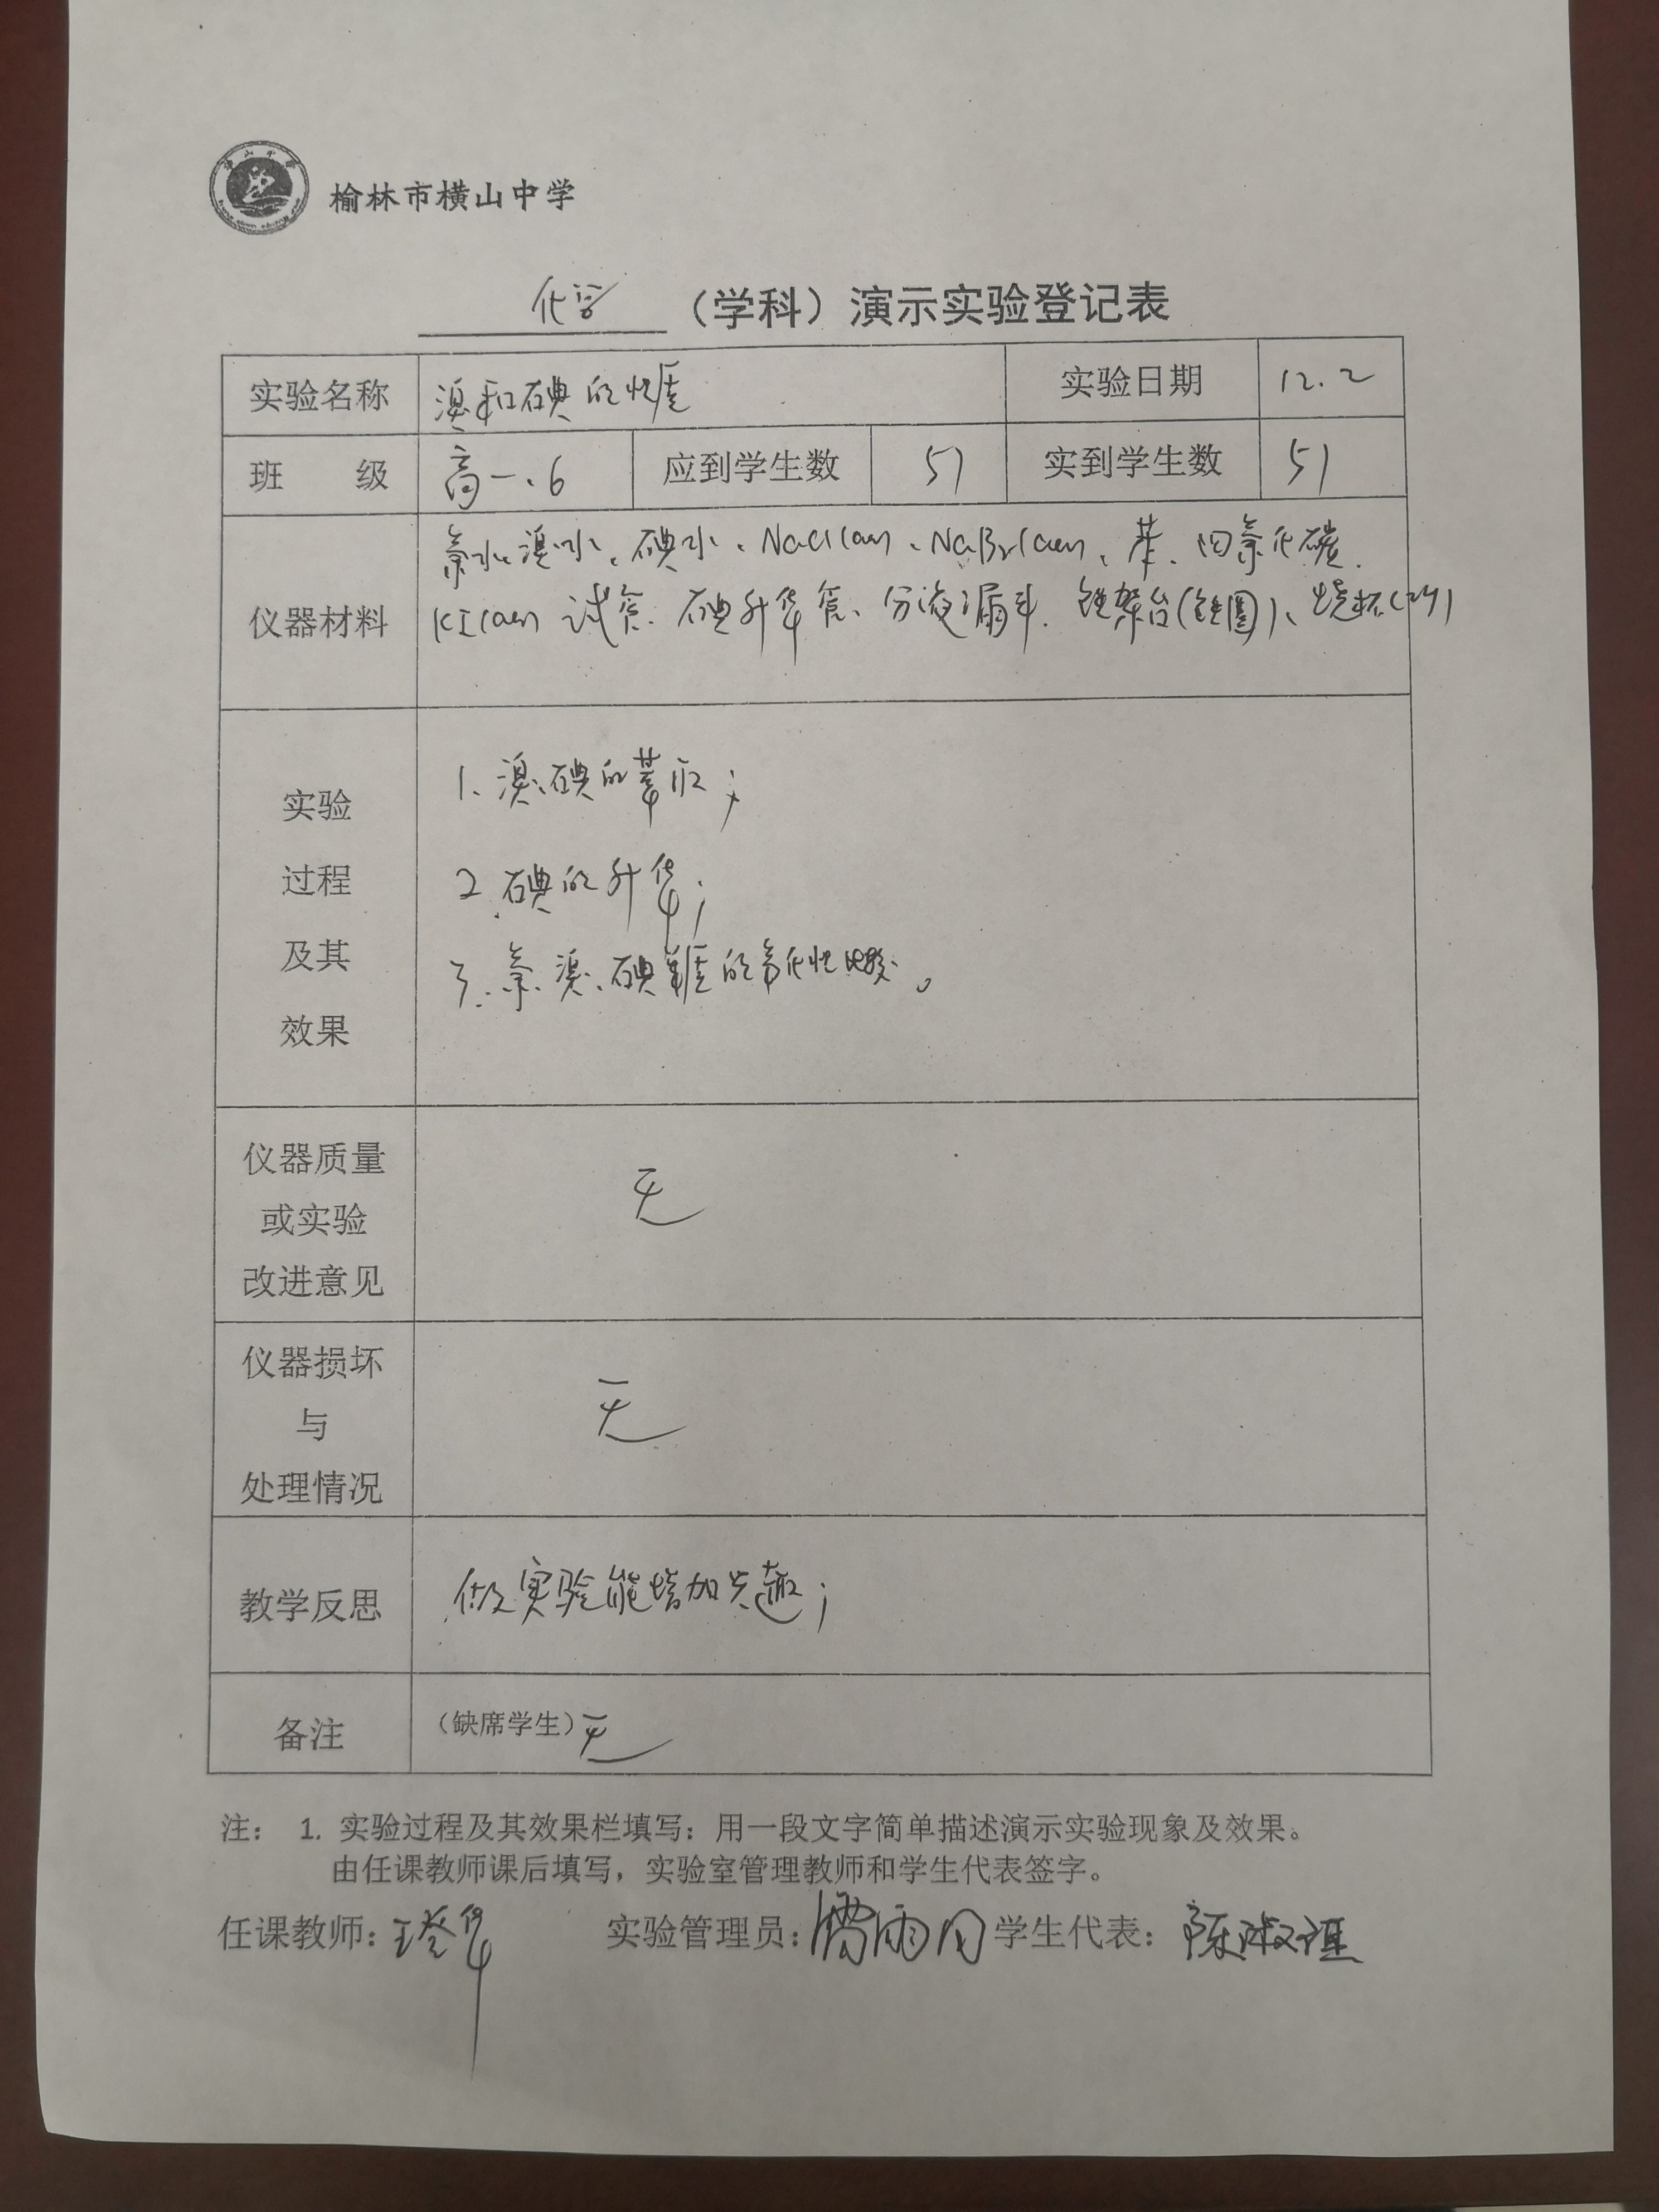 榆林市横山中学
化学 （学科）演示实验登记表
实验名称 溴和碘的性质 实验日期 12.2
班 级 高一.6 应到学生数 51 实到学生数 51
仪器材料
氯水、溴水、碘水、NaCl(aq)、NaBr(aq)、苯、四氯化碳.
KI(aq) 试管、碘升华管、分液漏斗、铁架台(铁圈)、烧杯
实验
过程
及其
效果
1、溴、碘的萃取；
2、碘的升华；
3、氯、溴、碘单质的氧化性比较。
仪器质量
或实验
改进意见
无
仪器损坏
与
处理情况
无
教学反思 做实验能增加兴趣；
备注 （缺席学生）无
注： 1. 实验过程及其效果栏填写：用一段文字简单描述演示实验现象及效果。
由任课教师课后填写，实验室管理教师和学生代表签字。
任课教师： 实验管理员： 学生代表：